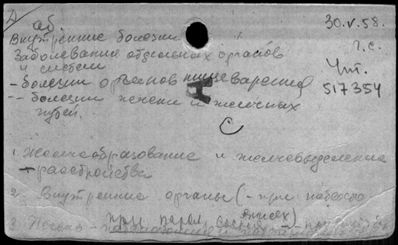 Д аб
30.V.58.
Внутренние болезни
г.с.
Заболевание отдельных органов
и систем
Чит.
- болезни органов пищеварения
517354
-- болезни печени и желчных
путей.
С
1. Желчеобразование и желчевыделение
- расстройства
2. Внутренние органы (- при
при парал.
3. Печень -